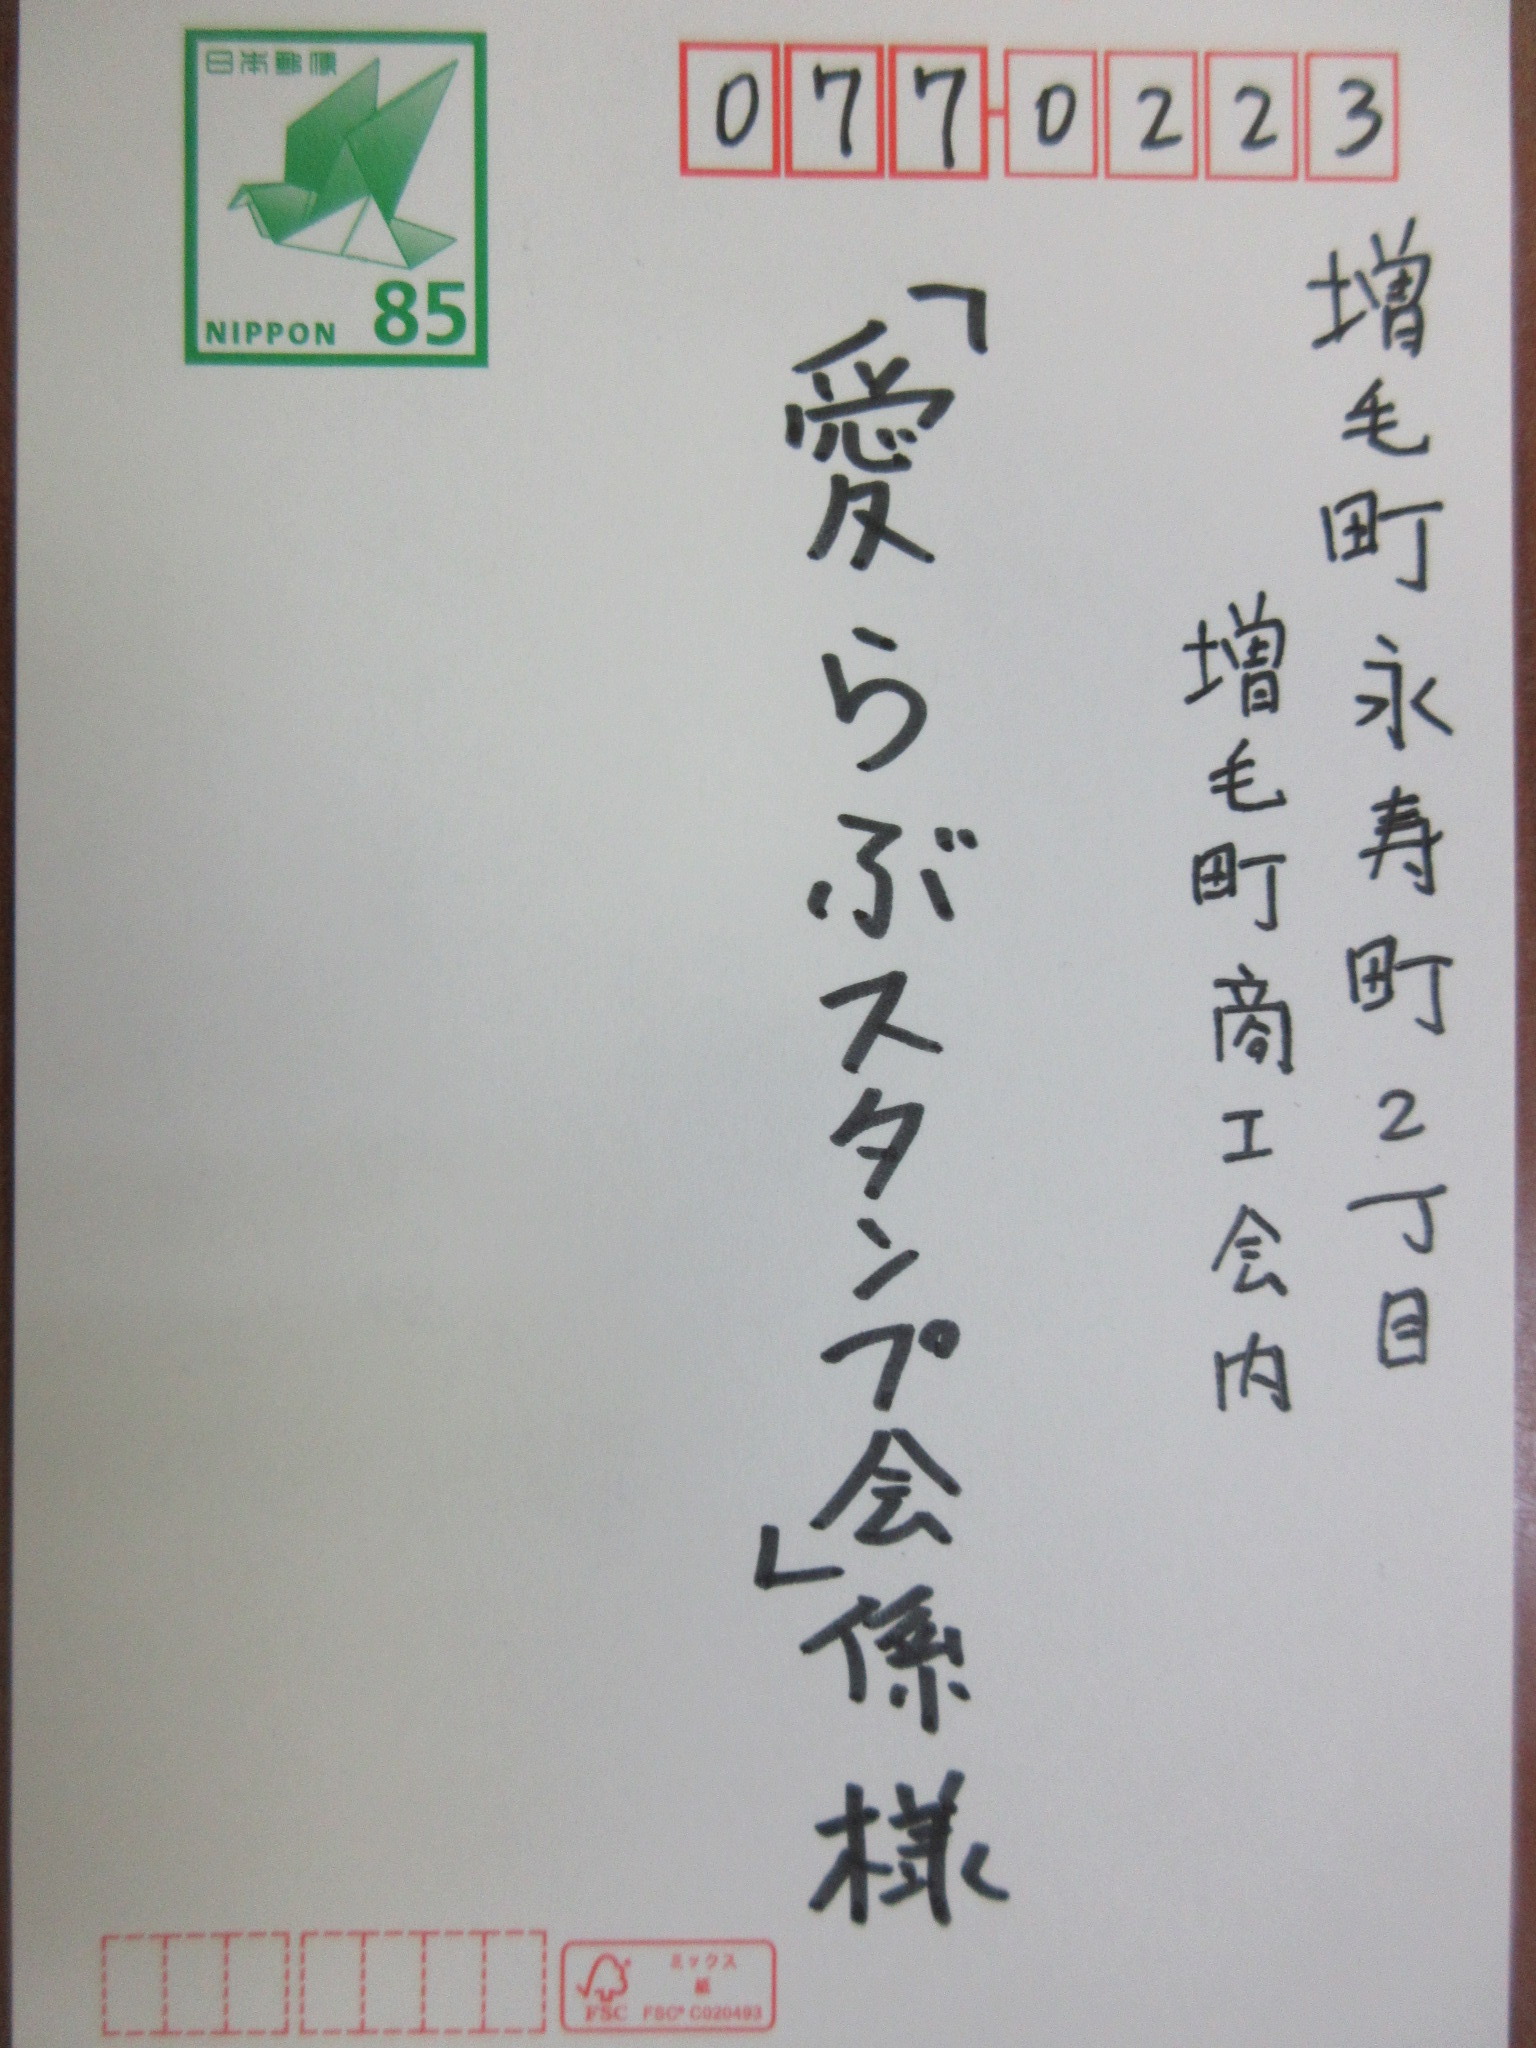 日本郵便
NIPPON 85
077-0223
増毛町永寿町2丁目
増毛町商工会内
「愛らぶスタンプ会」係様
ミックス
紙
FSC FSC® C020493